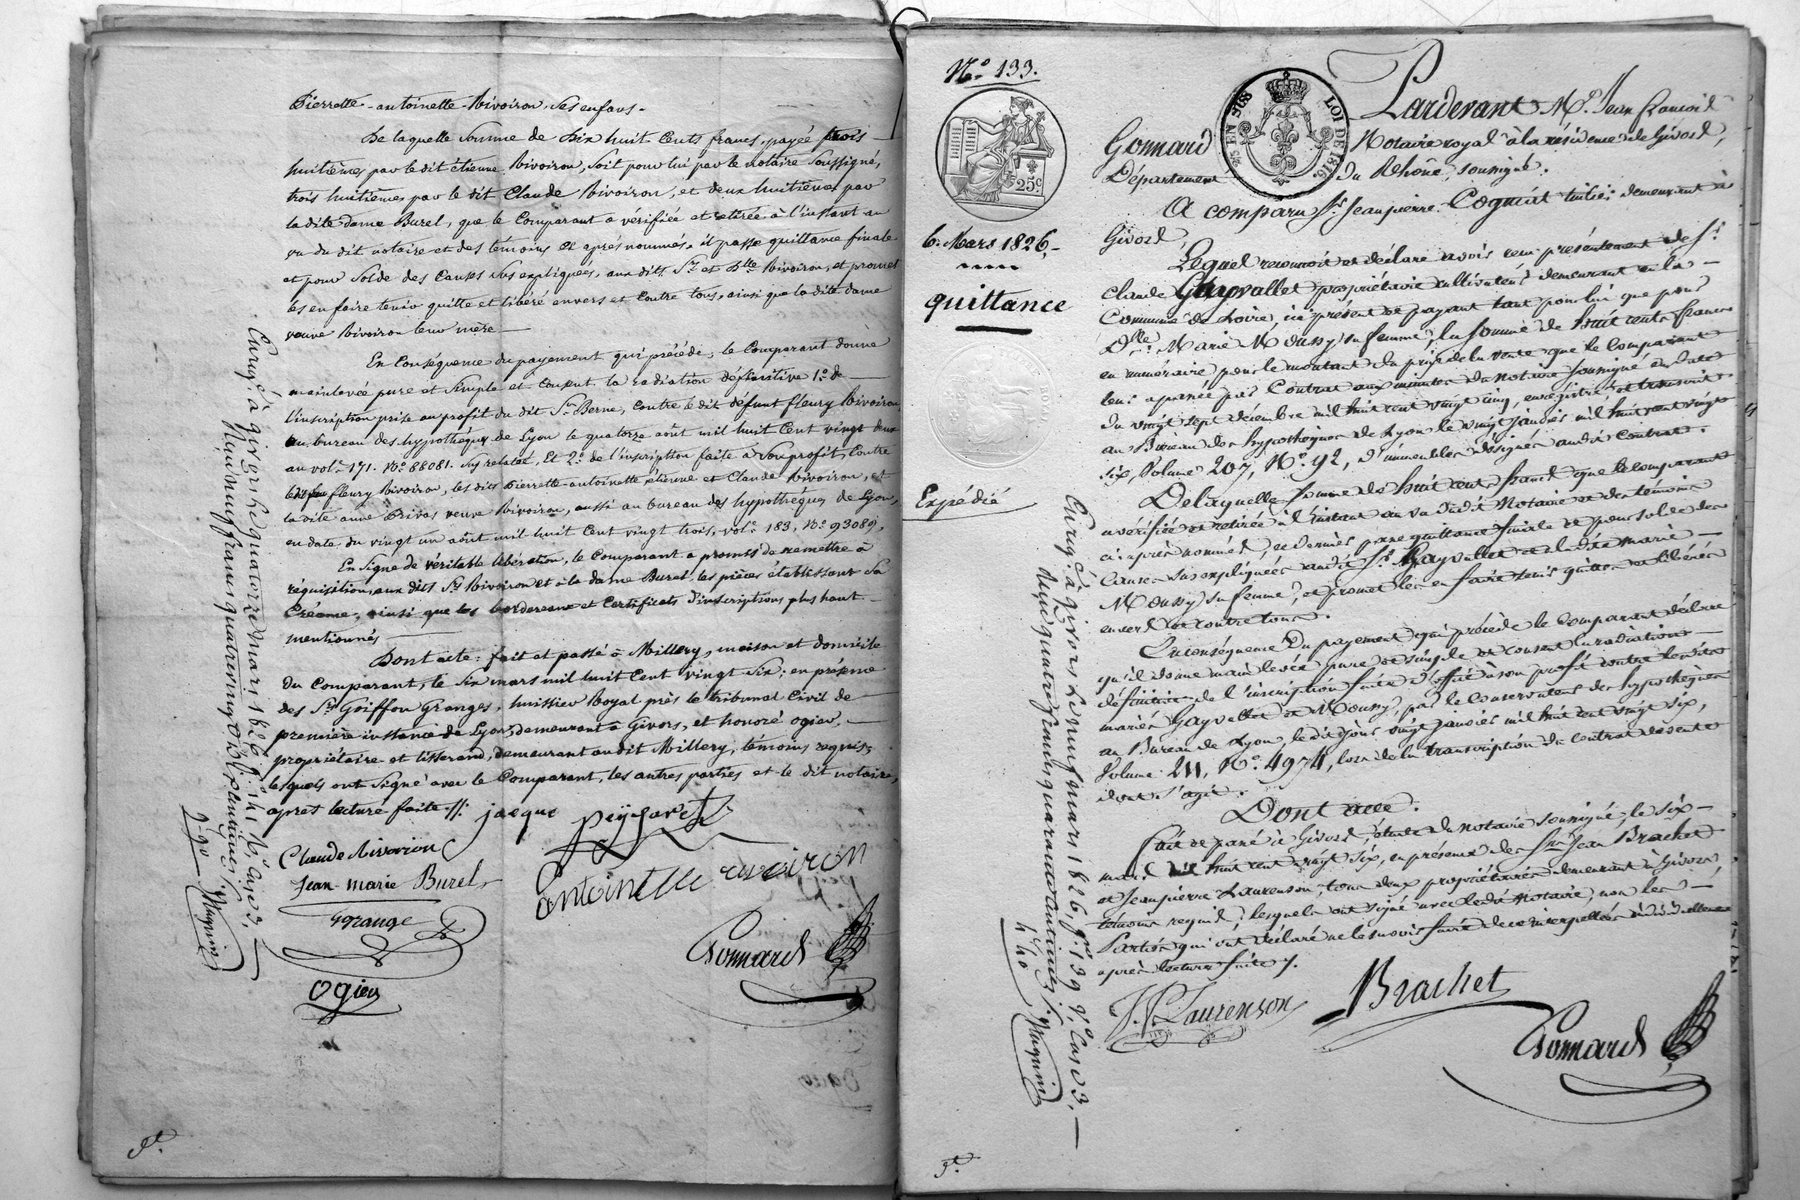 Pierrette-antoinette Rivoiron, ses enfans.
De laquelle somme de Dix huit Cents francs, payée trois
huitièmes par le dit étienne Rivoiron, soit pour lui par le notaire Soussigné,
trois huitièmes par le dit Claude Rivoiron, et deux huitièmes par
la dite dame Burel, que le Comparant a vérifiée et retirée à l'instant au
vu du dit notaire et des témoins ci après nommés, il passe quittance finale
et pour Solde des Causes sus expliquées, aux dits Srs et Dlle Rivoiron, et promet
les en faire tenir quitte et libéré envers et Contre tous, ainsi que la dite dame
veuve Rivoiron leur mère —
En Conséquence du payement qui précède, le Comparant donne
mainlevée pure et Simple et Consent la radiation définitive 1o de
l'inscription prise au profit du dit Sr Berne, Contre le dit défunt fleury Rivoiron
au bureau des hypothèques de Lyon le quatorze août mil huit Cent vingt deux
au vol. 171. No 88081. Sus relatée, Et 2o de l'inscription faite à Son profit, Contre
fleury Rivoiron, les dits Pierrette-antoinette étienne et Claude Rivoiron, et
la dite anne Privas veuve Rivoiron, aussi au bureau des hypothèques de Lyon,
en date du vingt un août mil huit Cent vingt trois, vol. 183, No 93089,
En Signe de véritable libération, le Comparant a promis de remettre à
réquisition, aux dits Srs Rivoiron et à la dame Burel, les pièces établissant sa
Créance, ainsi que les bordereaux et Certificats d'inscriptions plus haut
mentionnés
Dont acte: fait et passé à Millery, maison et domicile
du Comparant, le Six mars mil huit Cent vingt Six; en présence
des Srs Goiffon Granges, huissier Royal près le tribunal Civil de
première instance de Lyon, demeurant à Givors, et honoré ogier,
propriétaire et tisserand, demeurant au dit Millery, témoins requis;
lesquels ont Signé avec le Comparant, les autres parties et le dit notaire,
après lecture faite ./.
jacque peyssaret
Claude Rivoiron
antoinette rivoiron
Jean-marie Burel
granges
Gonnard
Ogier
Enregé à givors le quatorze mars 1826, fo 141 Vo Cases 3,
Reçu neuf francs quatre vingt dix centimes
9-90
Magnin
No 133.
25c
EN SUS
LOI DE 1816
6. Mars 1826.
quittance
Expédié
Pardevant Me Jean François
Gonnard Notaire royal à la résidence de Givors,
Département du Rhône, soussigné.
A comparu Sr Jean pierre Cognat tuilier demeurant à
Givors,
Lequel reconnoit et déclare avoir reçu présentement de Sr
Claude Gayvallet propriétaire cultivateur demeurant en la
Commune de Loire, ici présent et payant tant pour lui que pour
Dlle Marie Moussy sa femme, la somme de huit cents francs
en numéraire pour le montant du prix de la vente que le comparant
leur a passée par Contrat aux minutes du notaire soussigné en date
du vingt sept décembre mil huit cent vingt cinq, enregistré, et transcrit
au Bureau des hypothèques de Lyon le vingt janvier mil huit cent vingt
six, Volume 207, No 92, d'immeubles désignés audit contrat.
De laquelle somme de huit cents francs que le comparant
a vérifiée et retirée à l'instant au vu dudit Notaire et des témoins
ci-après nommés, il passe quittance finale et pour solde des
Causes sus expliquées audit Sr Gayvallet et à ladite marie
Moussy sa femme, et promet les en faire tenir quittes et libérés
envers et contre tous.
En conséquence du payement qui précède le comparant déclare
qu'il donne main levée pure et simple et consent la radiation
définitive de l'inscription faite d'office à son profit contre lesdits
mariés Gayvallet et Moussy, par le Conservateur des hypothèques
au Bureau de Lyon, le dit jour vingt janvier mil huit cent vingt six,
Volume 211, No 4974, lors de la transcription du contrat de vente
dont s'agit.
Dont acte:
fait et passé à Givors, étude du notaire soussigné, le six
mars mil huit cent vingt six, en présence des Srs Jean Brachet
et Jean pierre Laurenson, tous deux propriétaires demeurant à Givors
témoins requis, lesquels ont signé avec ledit Notaire, non les
Parties qui ont déclaré ne le savoir faire de ce interpellées individuellement
après lecture faite ./.
J. P. Laurenson
Brachet
Gonnard
Enregé à Givors le neuf mars 1826, fo 139 Vo Cases 3,
Reçu quatre francs quarante centimes
4.40
Magnin